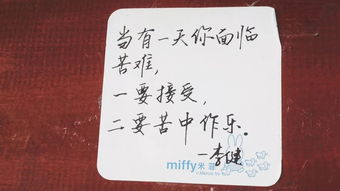 当有一天你面临
苦难，
一要接受，
二要苦中作乐。
—李健
miffy米菲